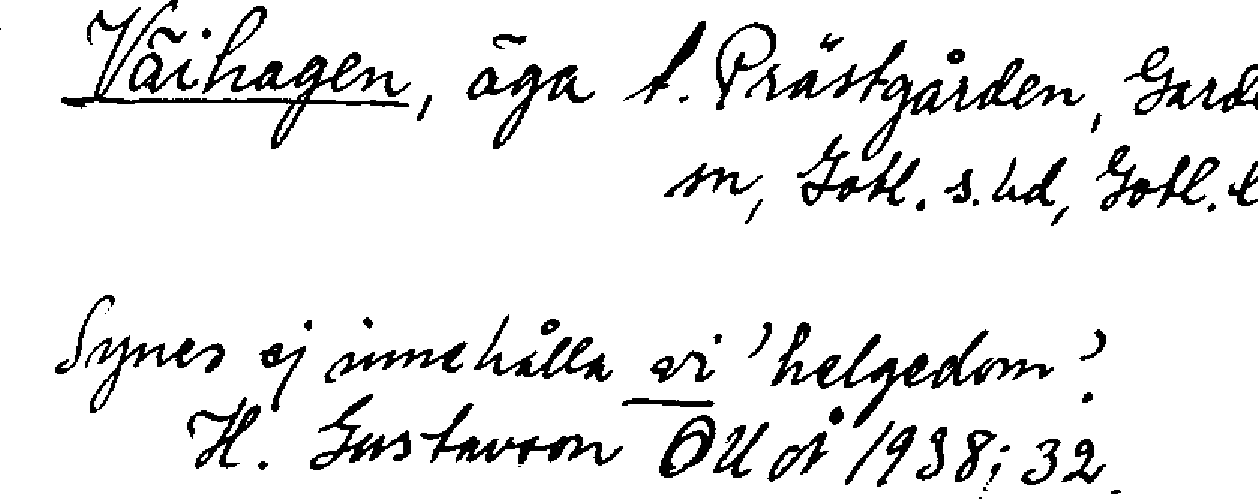 Väihagen, äga t. Prästgården, Garde
sn, Gotl. s. hd, Gotl. l
Synes ej innehålla vi 'helgedom'.
H. Gustavson OUÅ 1938; 32.